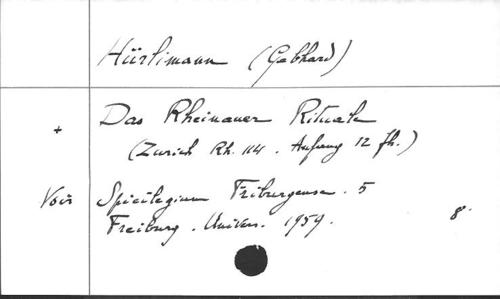 Hürlimann (Gebhard)
+ Das Rheinauer Rituale
(Zürich Rh. 114. Anfang 12 Jh.)
Voir Spicilegium Friburgense. 5
Freiburg. Univers. 1959. 8°